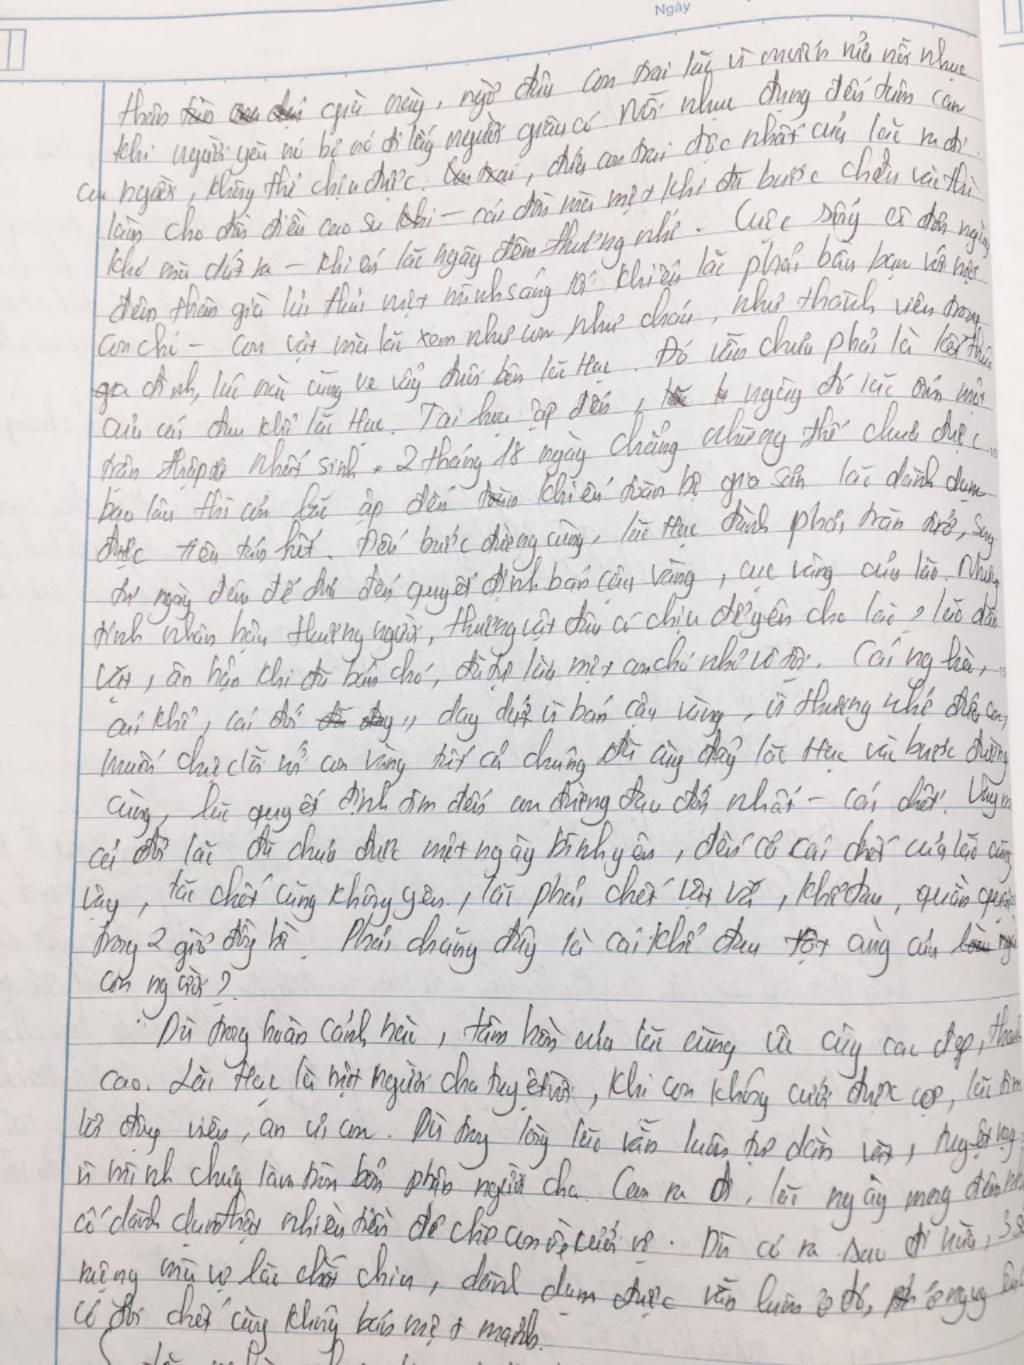 Ngày
thân già này, ngờ đâu con trai lão vì nỗi nhục
khi người yêu nó bỏ nó đi lấy người giàu có. Nỗi nhục đụng đến tâm can
con người, không thể chịu được, đứa con trai độc nhất của lão ra đi
làm cho đồn điền cao su - cái đồn mà một khi đã bước chân vào thì
khó mà dứt ra - khiến lão ngày đêm thương nhớ. Cuộc sống cô đơn ngày
đêm thân già lủi thủi một mình sáng tối khiến lão phải bầu bạn với một
con chó - con vật mà lão xem như con như cháu, như thành viên trong
gia đình, lúc nào cũng ve vẩy đuôi bên lão Hạc. Đó vẫn chưa phải là kết thúc
của cái đau khổ lão Hạc. Tai họa ập đến, ngày đó lão ốm một
trận nhất sinh. 2 tháng 18 ngày chẳng nhưng thế chưa được
bao lâu thì cơn bão ập đến khiến toàn bộ gia sản lão dành dụm
được tiêu tán hết. Đến bước đường cùng, lão Hạc đành phải trăn trở, suy
tư ngày đêm để đưa đến quyết định bán cậu vàng, cục vàng của lão. Nhưng
tính nhân hậu thương người, thương vật đâu có chịu để yên cho lão, lão dằn
vặt, ân hận khi đã bán chó, đã lừa một con chó nhỏ vô tội. Cái nghèo,
cái khổ, cái đói, day dứt vì bán cậu vàng, vì thương nhớ đứa con,
muốn chuộc lỗi với con vàng tất cả chúng đã cùng đẩy lão Hạc vào bước đường
cùng, lão quyết định tìm đến con đường đau đớn nhất - cái chết. Vậy mà
cả đời lão đã chưa được một ngày bình yên, đến cả cái chết của lão cũng
vậy, lão chết cũng không yên, lão phải chết vật vã, khổ đau, quằn quại
trong 2 giờ đồng hồ. Phải chăng đây là cái khổ đau tột cùng của
con người?
Dù trong hoàn cảnh nào, tâm hồn của lão cũng vô cùng cao đẹp, thanh
cao. Lão Hạc là một người cha tuyệt vời, khi con không cưới được vợ, lão tìm
lời động viên, an ủi con. Dù trong lòng lão vẫn luôn tự dằn vặt, tuyệt vọng
vì mình chưa làm tròn bổn phận người cha. Con ra đi, lão ngày mong đêm nhớ
cố dành dụm thật nhiều tiền để chờ con về cưới vợ. Dù có ra sao đi nữa, 3 sào
ruộng mà vợ lão chắt chiu, dành dụm được vẫn luôn ở đó, ở nguyên
có đói chết cũng không bán một mảnh.